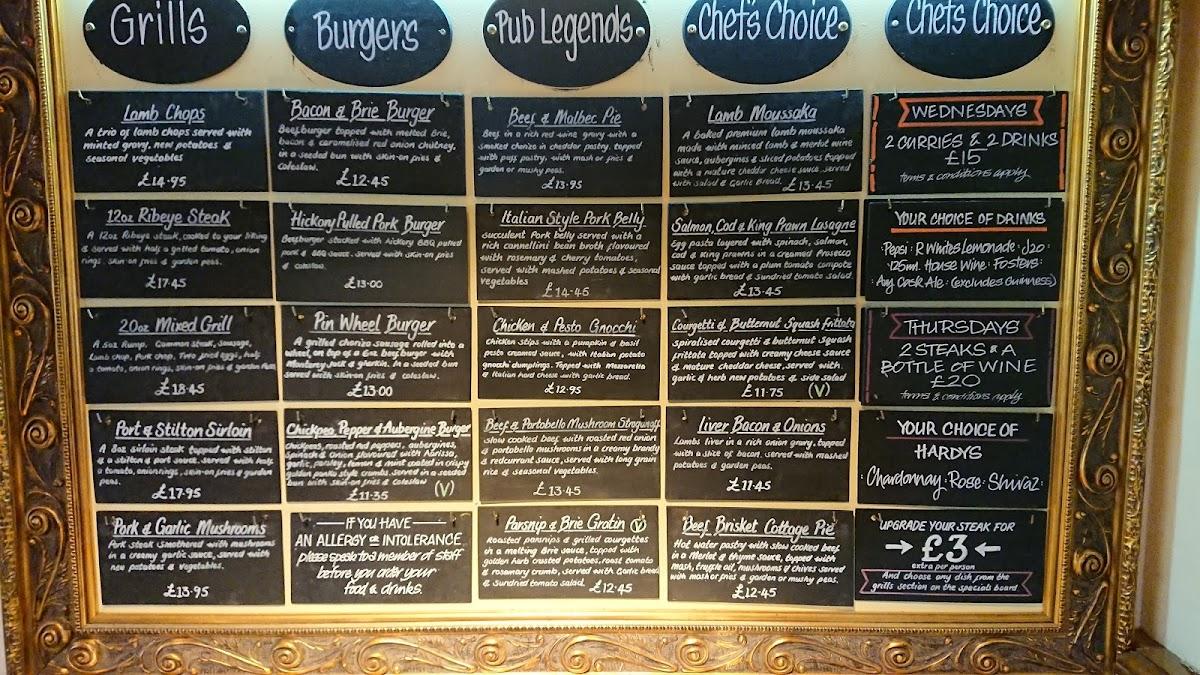 Grills
Lamb Chops
A trio of lamb chops served with
minted gravy, new potatoes &
seasonal vegetables
£14.95
12oz Ribeye Steak
A 12oz Ribeye steak, cooked to your liking
& served with half a grilled tomato, onion
rings, skin-on fries & garden peas.
£17.45
20oz Mixed Grill
A 5oz Rump, Gammon steak, sausage,
Lamb chop, Pork chop, Two fried eggs, half
a tomato, onion rings, skin-on fries & garden peas
£18.45
Port & Stilton Sirloin
A 8oz sirloin steak topped with stilton
& a shallot & port sauce, served with half
a tomato, onion rings, skin-on fries & garden
peas.
£17.95
Pork & Garlic Mushrooms
Pork steak smothered with mushrooms
in a creamy garlic sauce, served with
new potatoes & vegetables.
£13.95
Burgers
Bacon & Brie Burger
Beefburger topped with melted Brie,
bacon & caramelised red onion chutney,
in a seeded bun with skin-on fries &
coleslaw.
£12.45
Hickory Pulled Pork Burger
Beefburger stacked with hickory BBQ pulled
pork & BBQ sauce. Served with skin-on fries
& coleslaw.
£13.00
Pin Wheel Burger
A grilled chorizo sausage rolled into a
wheel, on top of a 6oz beefburger with
Monterey Jack & gherkin. In a seeded bun
served with skin-on fries & coleslaw.
£13.00
Chickpea Pepper & Aubergine Burger
Chickpeas, roasted red peppers, aubergines,
Spinach & onion flavoured with Harissa,
garlic, parsley, lemon & mint coated in crispy
golden panko style crumbs. Served in a seeded
bun with skin-on fries & coleslaw
£11.35 (V)
IF YOU HAVE
AN ALLERGY OR INTOLERANCE
please speak to a member of staff
before you order your
food & drinks.
Pub Legends
Beef & Malbec Pie
Beef in a rich red wine gravy with a
smoked chorizo in cheddar pastry, topped
with puff pastry, with mash or fries &
garden or mushy peas.
£13.95
Italian Style Pork Belly
succulent Pork belly served with a
rich cannellini bean broth flavoured
with rosemary & cherry tomatoes,
served with mashed potatoes & seasonal
vegetables
£14.45
Chicken & Pesto Gnocchi
Chicken stips with a pumpkin & basil
pesto creamed sauce, with Italian potato
gnocchi dumplings. Topped with Mozzarella
& Italian hard cheese with garlic bread.
£12.95
Beef & Portabello Mushroom Stroganoff
slow cooked beef with roasted red onion
& portabello mushrooms in a creamy brandy
& redcurrant sauce, served with long grain
rice & seasonal vegetables.
£13.45
Parsnip & Brie Gratin (V)
Roasted parsnips & grilled courgettes
in a melting Brie sauce, topped with
golden herb crusted potatoes, roast tomato
& rosemary crumb, served with Garlic bread
& Sundried tomato salad.
£12.45
Chef's Choice
Lamb Moussaka
A baked premium lamb moussaka
made with minced lamb & merlot wine
sauce, aubergines & sliced potatoes topped
with a mature cheddar cheese sauce. served
with salad & Garlic Bread. £13.45
Salmon, Cod & King Prawn Lasagne
Egg pasta layered with spinach, salmon,
cod & king prawns in a creamed Prosecco
sauce topped with a plum tomato compote
with garlic bread & sundried tomato salad.
£13.45
Courgetti & Butternut Squash Frittata
spiralised courgetti & butternut squash
frittata topped with creamy cheese sauce
& mature cheddar cheese, served with
garlic & herb new potatoes & side salad
£11.75 (V)
Liver Bacon & Onions
Lambs liver in a rich onion gravy, topped
with a slice of bacon, served with mashed
potatoes & garden peas.
£11.45
Beef Brisket Cottage Pie
Hot water pastry with slow cooked beef
in a Merlot & thyme sauce, topped with
mash, truffle oil, mushrooms & chives served
with mash or fries & garden or mushy peas.
£12.45
Chefs Choice
WEDNESDAYS
2 CURRIES & 2 DRINKS
£15
terms & conditions apply.
YOUR CHOICE OF DRINKS
Pepsi · R Whites Lemonade · J2o ·
125ml House Wine · Fosters ·
Any Cask Ale · (excludes Guinness)
THURSDAYS
2 STEAKS & A
BOTTLE OF WINE
£20
terms & conditions apply
YOUR CHOICE OF
HARDYS
Chardonnay · Rose · Shiraz ·
UPGRADE YOUR STEAK FOR
£3
extra per person
And choose any dish from the
grills section on the specials board